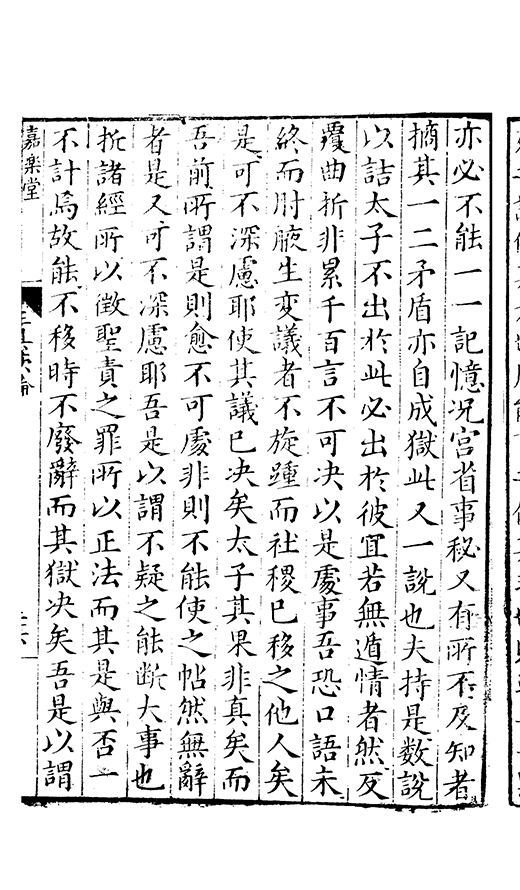 亦必不能一一記憶况宫省事秘又有所不及知者
摘其一二矛盾亦自成獄此又一説也夫持是数説
以詰太子不出於此必出於彼宜若無遁情者然反
覆曲折非累千百言不可决以是處事吾恐口語未
終而肘腋生变議者不旋踵而社稷已移之他人矣
是可不深慮耶使其議已决矣太子其果非真矣而
吾前所謂是則愈不可處非則不能使之帖然無辭
者是又可不深慮耶吾是以謂不疑之能斷大事也
折諸經所以徵聖責之罪所以正法而其是與否一
不計焉故能不移時不廢辭而其獄决矣吾是以謂
嘉樂堂